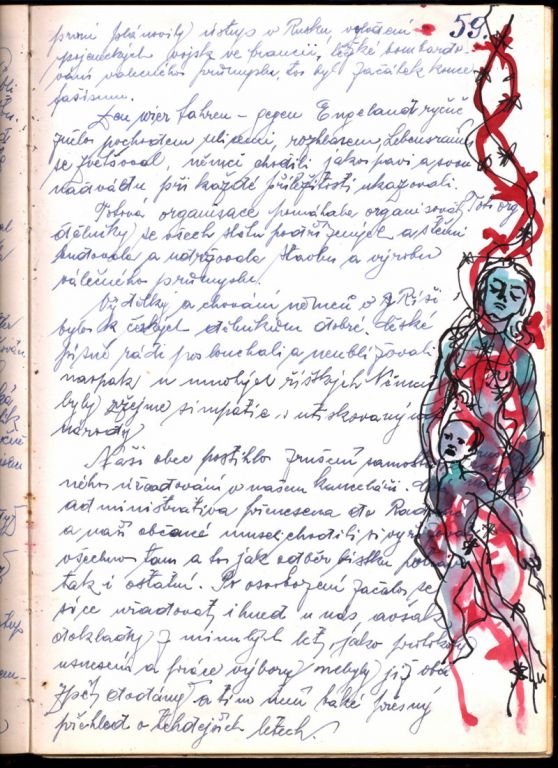 59.
první plánovitý ústup v Rusku, vylodění
spojeneckých vojsk ve Francii, těžké bombardo-
vání válečného průmyslu, to byl začátek konce
fašismu.
Den wier fahren - gegen Engeland ryčic
znělo pochodem ulicemi, rozhlasem, Lebensraum
se zvětšoval, němci chodili jako pávi a svou
nadvládu při každé příležitosti ukazovali.
Totová organisace pomáhala organisovat
dělníky ze všech států podrobených a s těmi
budovala a udržovala stavbu a výrobu
válečného průmyslu.
Výdělky a chování němců v Říši
bylo k českým dělníkům dobré. České
písně rádi poslouchali a neubližovali
naopak u mnohých říšských Němců
byly zřejmé simpatie i utiskovanými
národy.
Naši obec postihlo zrušení samostat-
ného úřadování v našem kanceláři.
administrativa přenesena do
a naši občané museli choditi si vyřizovat
všechno tam a to jak odběr lístků
tak i ostatní. Po osvobození začalo se
sice úřadovat ihned u nás, avšak
doklady z minulých let, jako protokoly
usnesení a práce výboru nebyly již
zpět dodány a tím není také přesný
přehled o tehdejších letech.